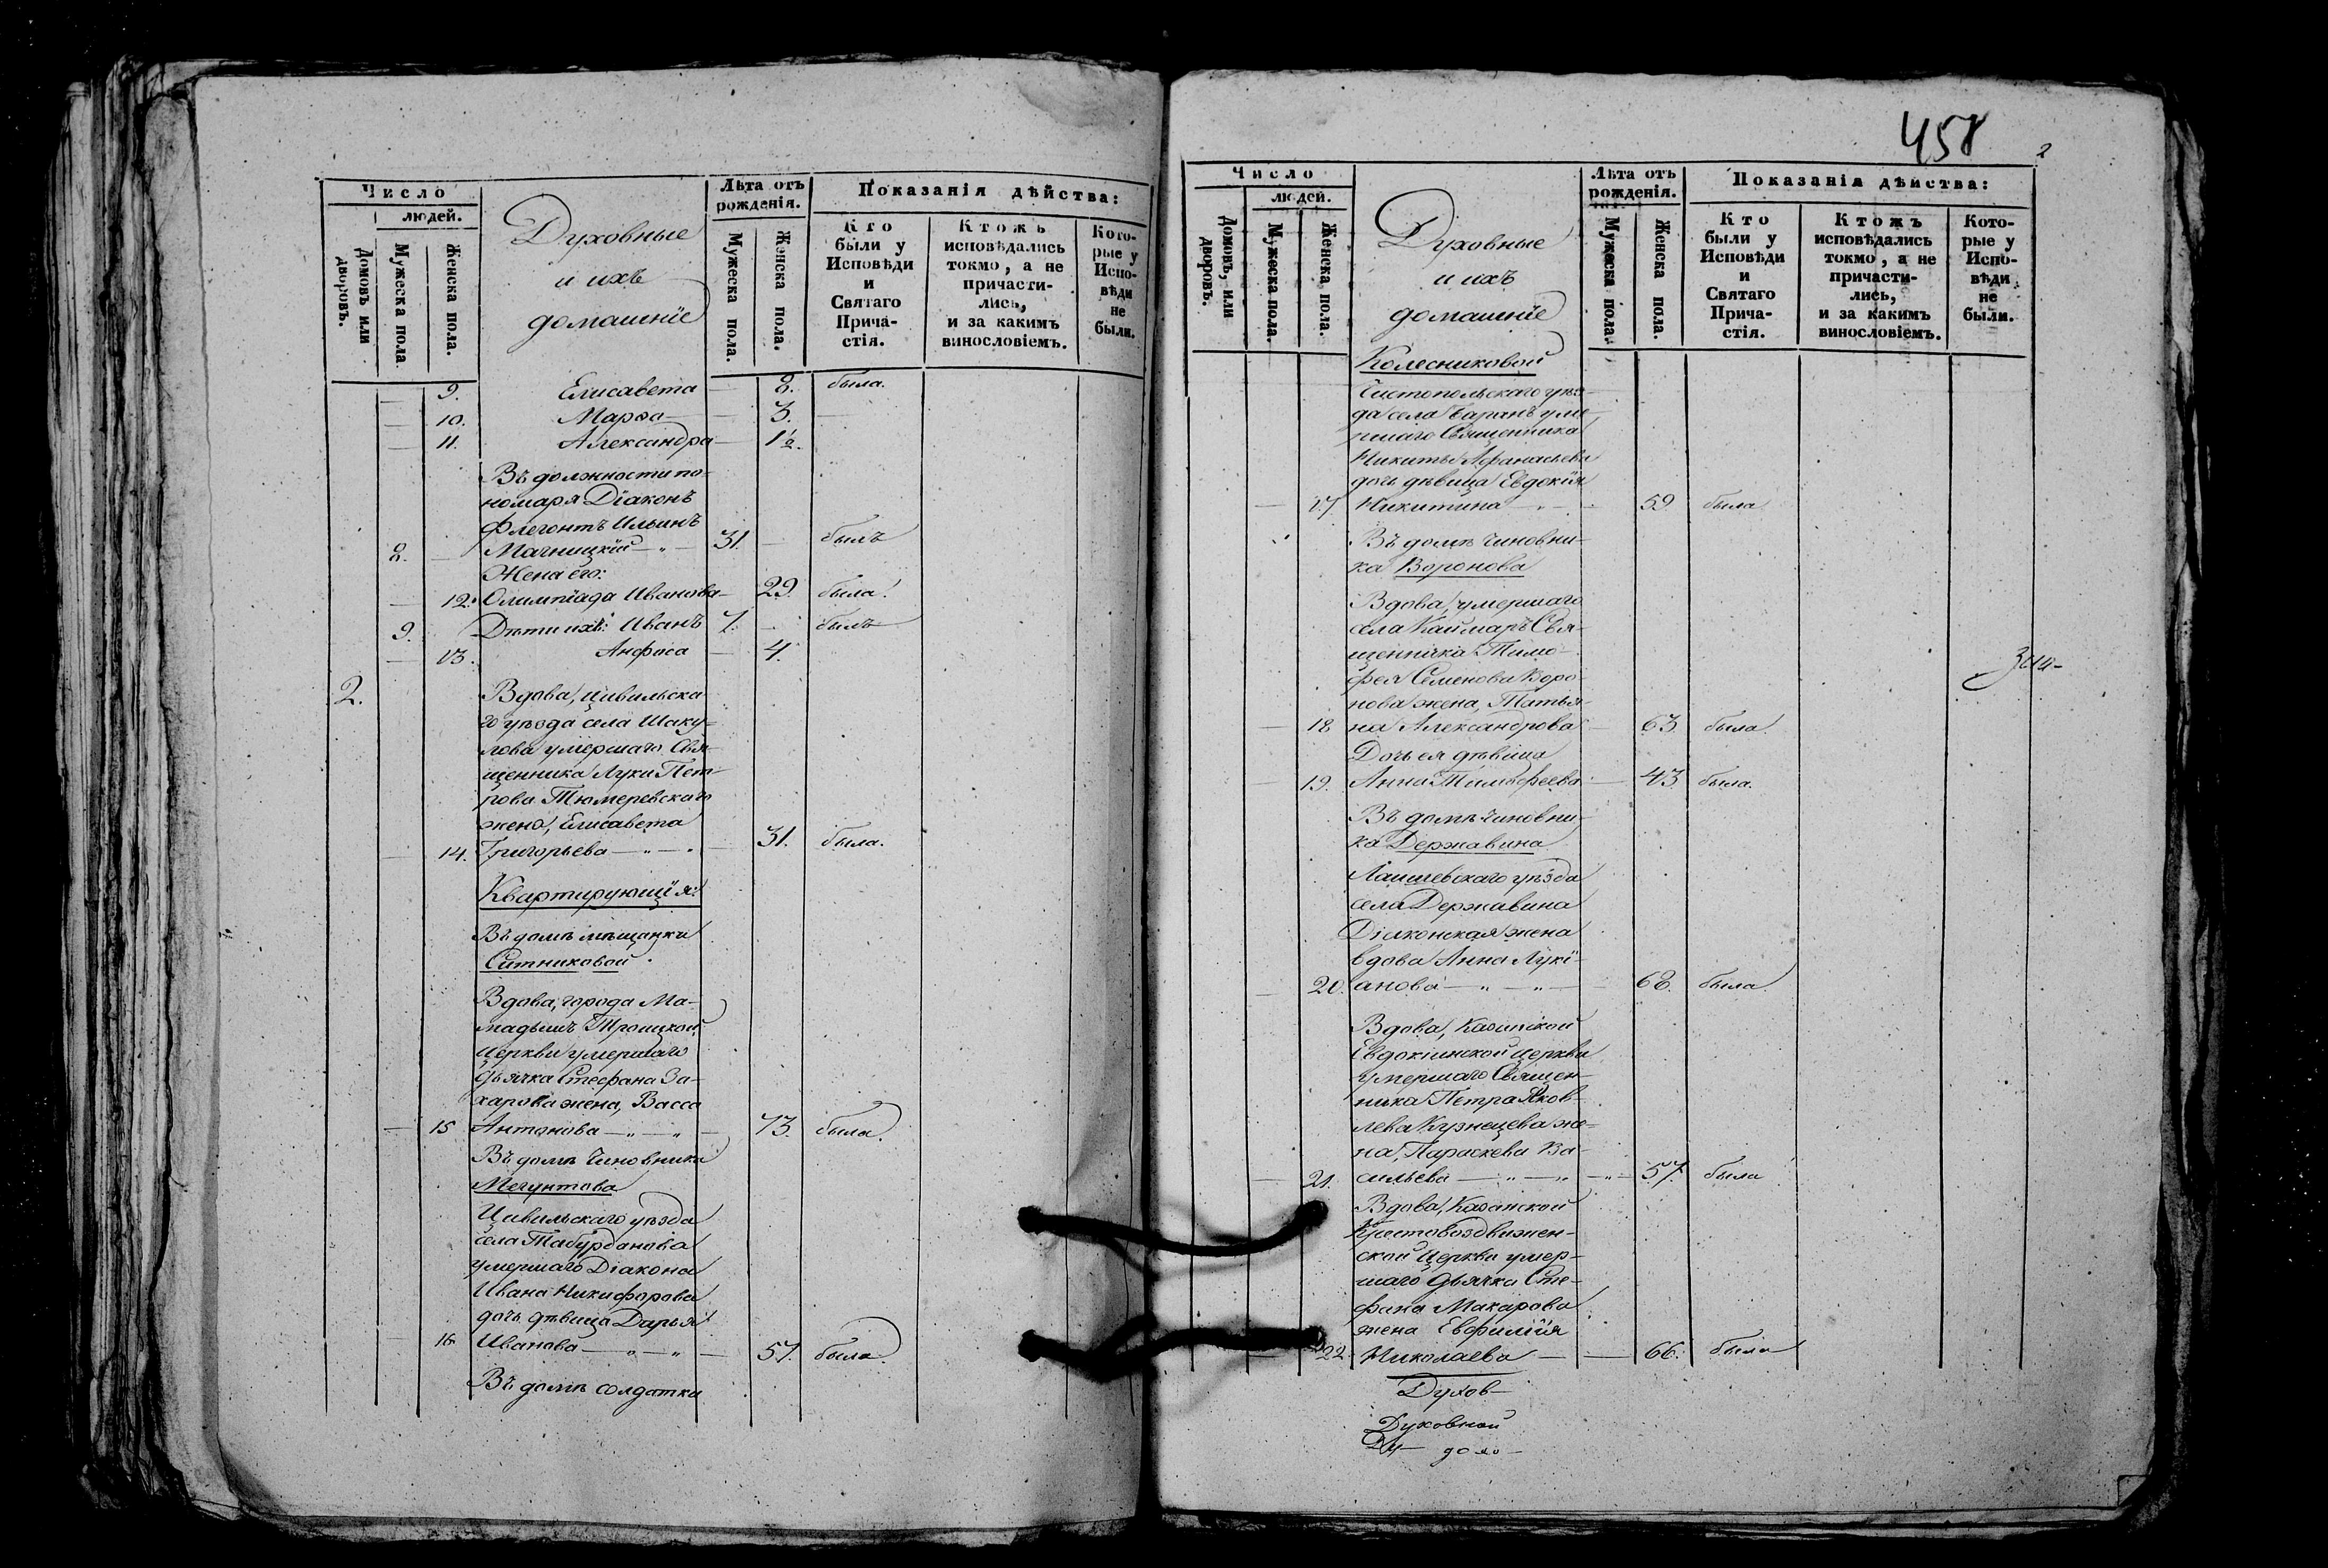 Число
людей.
Домовъ или дворовъ.
Мужеска пола
Женска пола.
Духовные
и ихъ
домашніе
Лѣта отъ рожденія.
Мужеска пола.
Женска пола.
Показанія дѣйства:
Кто были у Исповѣди и Святаго Прича-стія.
Ктожъ исповѣдались токмо, а не причасти-лись, и за какимъ винословіемъ.
Кото-рые у Испо-вѣди не были.
— 9. Елисавета — 8. была.
— 10. Марѳа — 3. —
— 11. Александра — 1½.
Въ должности по-
номаря Діаконъ
Флегонтъ Ильинъ
8. — Мачницкій — " — 31. — былъ
Жена его:
— 12. Олимпіада Иванова — 29. была.
9. Дѣти ихъ: Иванъ 7. — былъ
— 13. Анфиса — 4.
2. Вдова, Цивильска-
го уѣзда села Шаку-
лова умершаго Свя-
щенника Луки Пет-
рова Тюмеревскаго
жена, Елисавета
— 14. Григорьева — " — 31. была.
Квартирующія:
Въ домѣ мѣщанки
Ситниковой.
Вдова, города Ма-
мадышъ Троицкой
церкви умершаго
дьячка Стефана За-
харова жена, Васса
— 15 Антонова — " — " — 73. была.
Въ домѣ Чиновника
Мегунтова
Цивильскаго уѣзда
села Табурданова
умершаго Діакона
Ивана Никифорова
дочь дѣвица Дарья
— 16 Иванова — " — " — 57. была.
Въ домѣ солдатки
458
2
Число
людей.
Домовъ, или дворовъ.
Мужеска пола.
Женска пола.
Духовные
и ихъ
домашніе
Лѣта отъ рожденія.
Мужеска пола.
Женска пола.
Показанія дѣйства:
Кто были у Исповѣди и Святаго Прича-стія.
Ктожъ исповѣдались токмо, а не причасти-лись, и за какимъ винословіемъ.
Кото-рые у Испо-вѣди не были.
Колесниковой
Чистопольскаго уѣз-
да села Баранъ уме-
ршаго Священника
Никиты Афанасьева
дочь дѣвица Евдокія
— 17 Никитина — " — 59 была
Въ домѣ Чиновни-
ка Воронова
Вдова, умершаго
села Каймаръ Свя-
щенника Тимо-
фея Семенова Воро-
нова жена, Татья-
— 18 на Александрова — 63 была.
Дочь ея дѣвица
— 19. Анна Тимофеева — 43 была.
Въ домѣ Чиновни-
ка Державина
Лаишевскаго уѣзда
села Державина
Діаконская жена
вдова Анна Лукі-
— 20. анова — " — " — 68. была.
Вдова, Казанской
Евдокіинской церкви
умершаго Священ-
ника Петра Яков-
лева Кузнецева же-
на, Параскева Ва-
— 21. сильева — " — " — 57. была
Вдова, Казанской
Крестовоздвижен-
ской церкви умер-
шаго дьячка Сте-
фана Макарова
жена Евфимія
— 22. Николаева — — 66. была
Духов-
Духовной